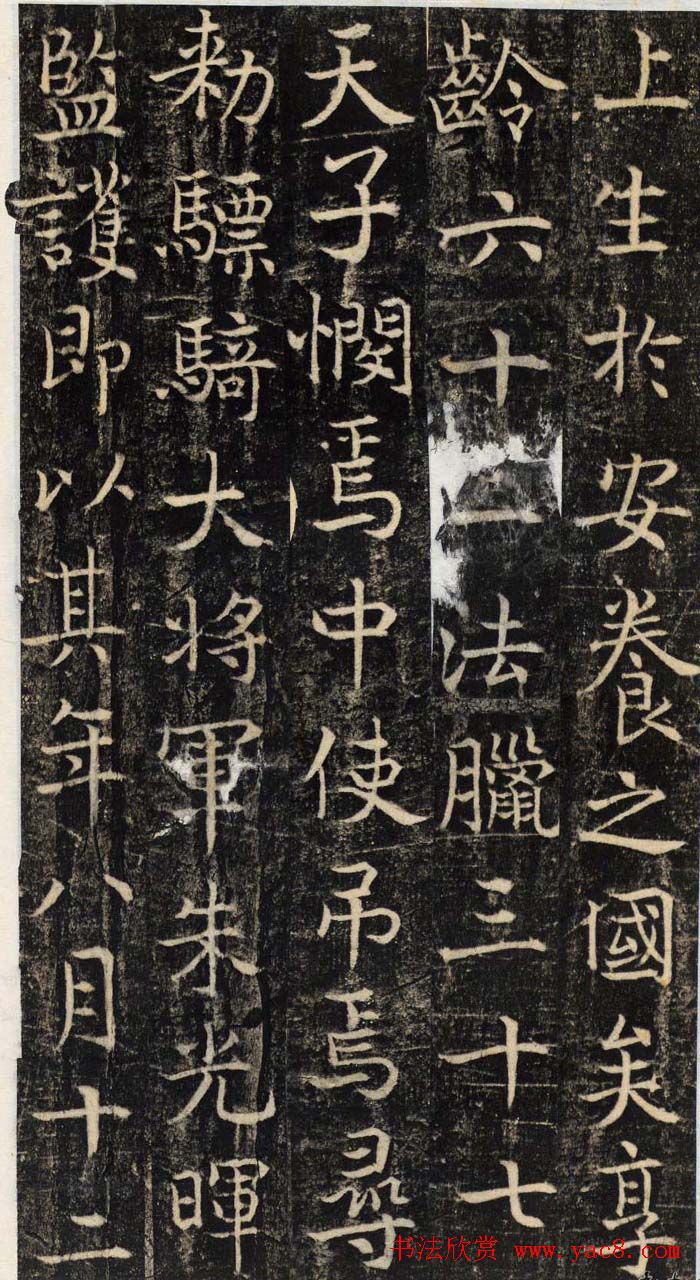 上生於安養之國矣享
齡六十一法臘三十七
天子憫焉中使吊焉尋
勑驃騎大將軍朱光暉
監護即以其年八月十二
书法欣赏 www.yac8.com